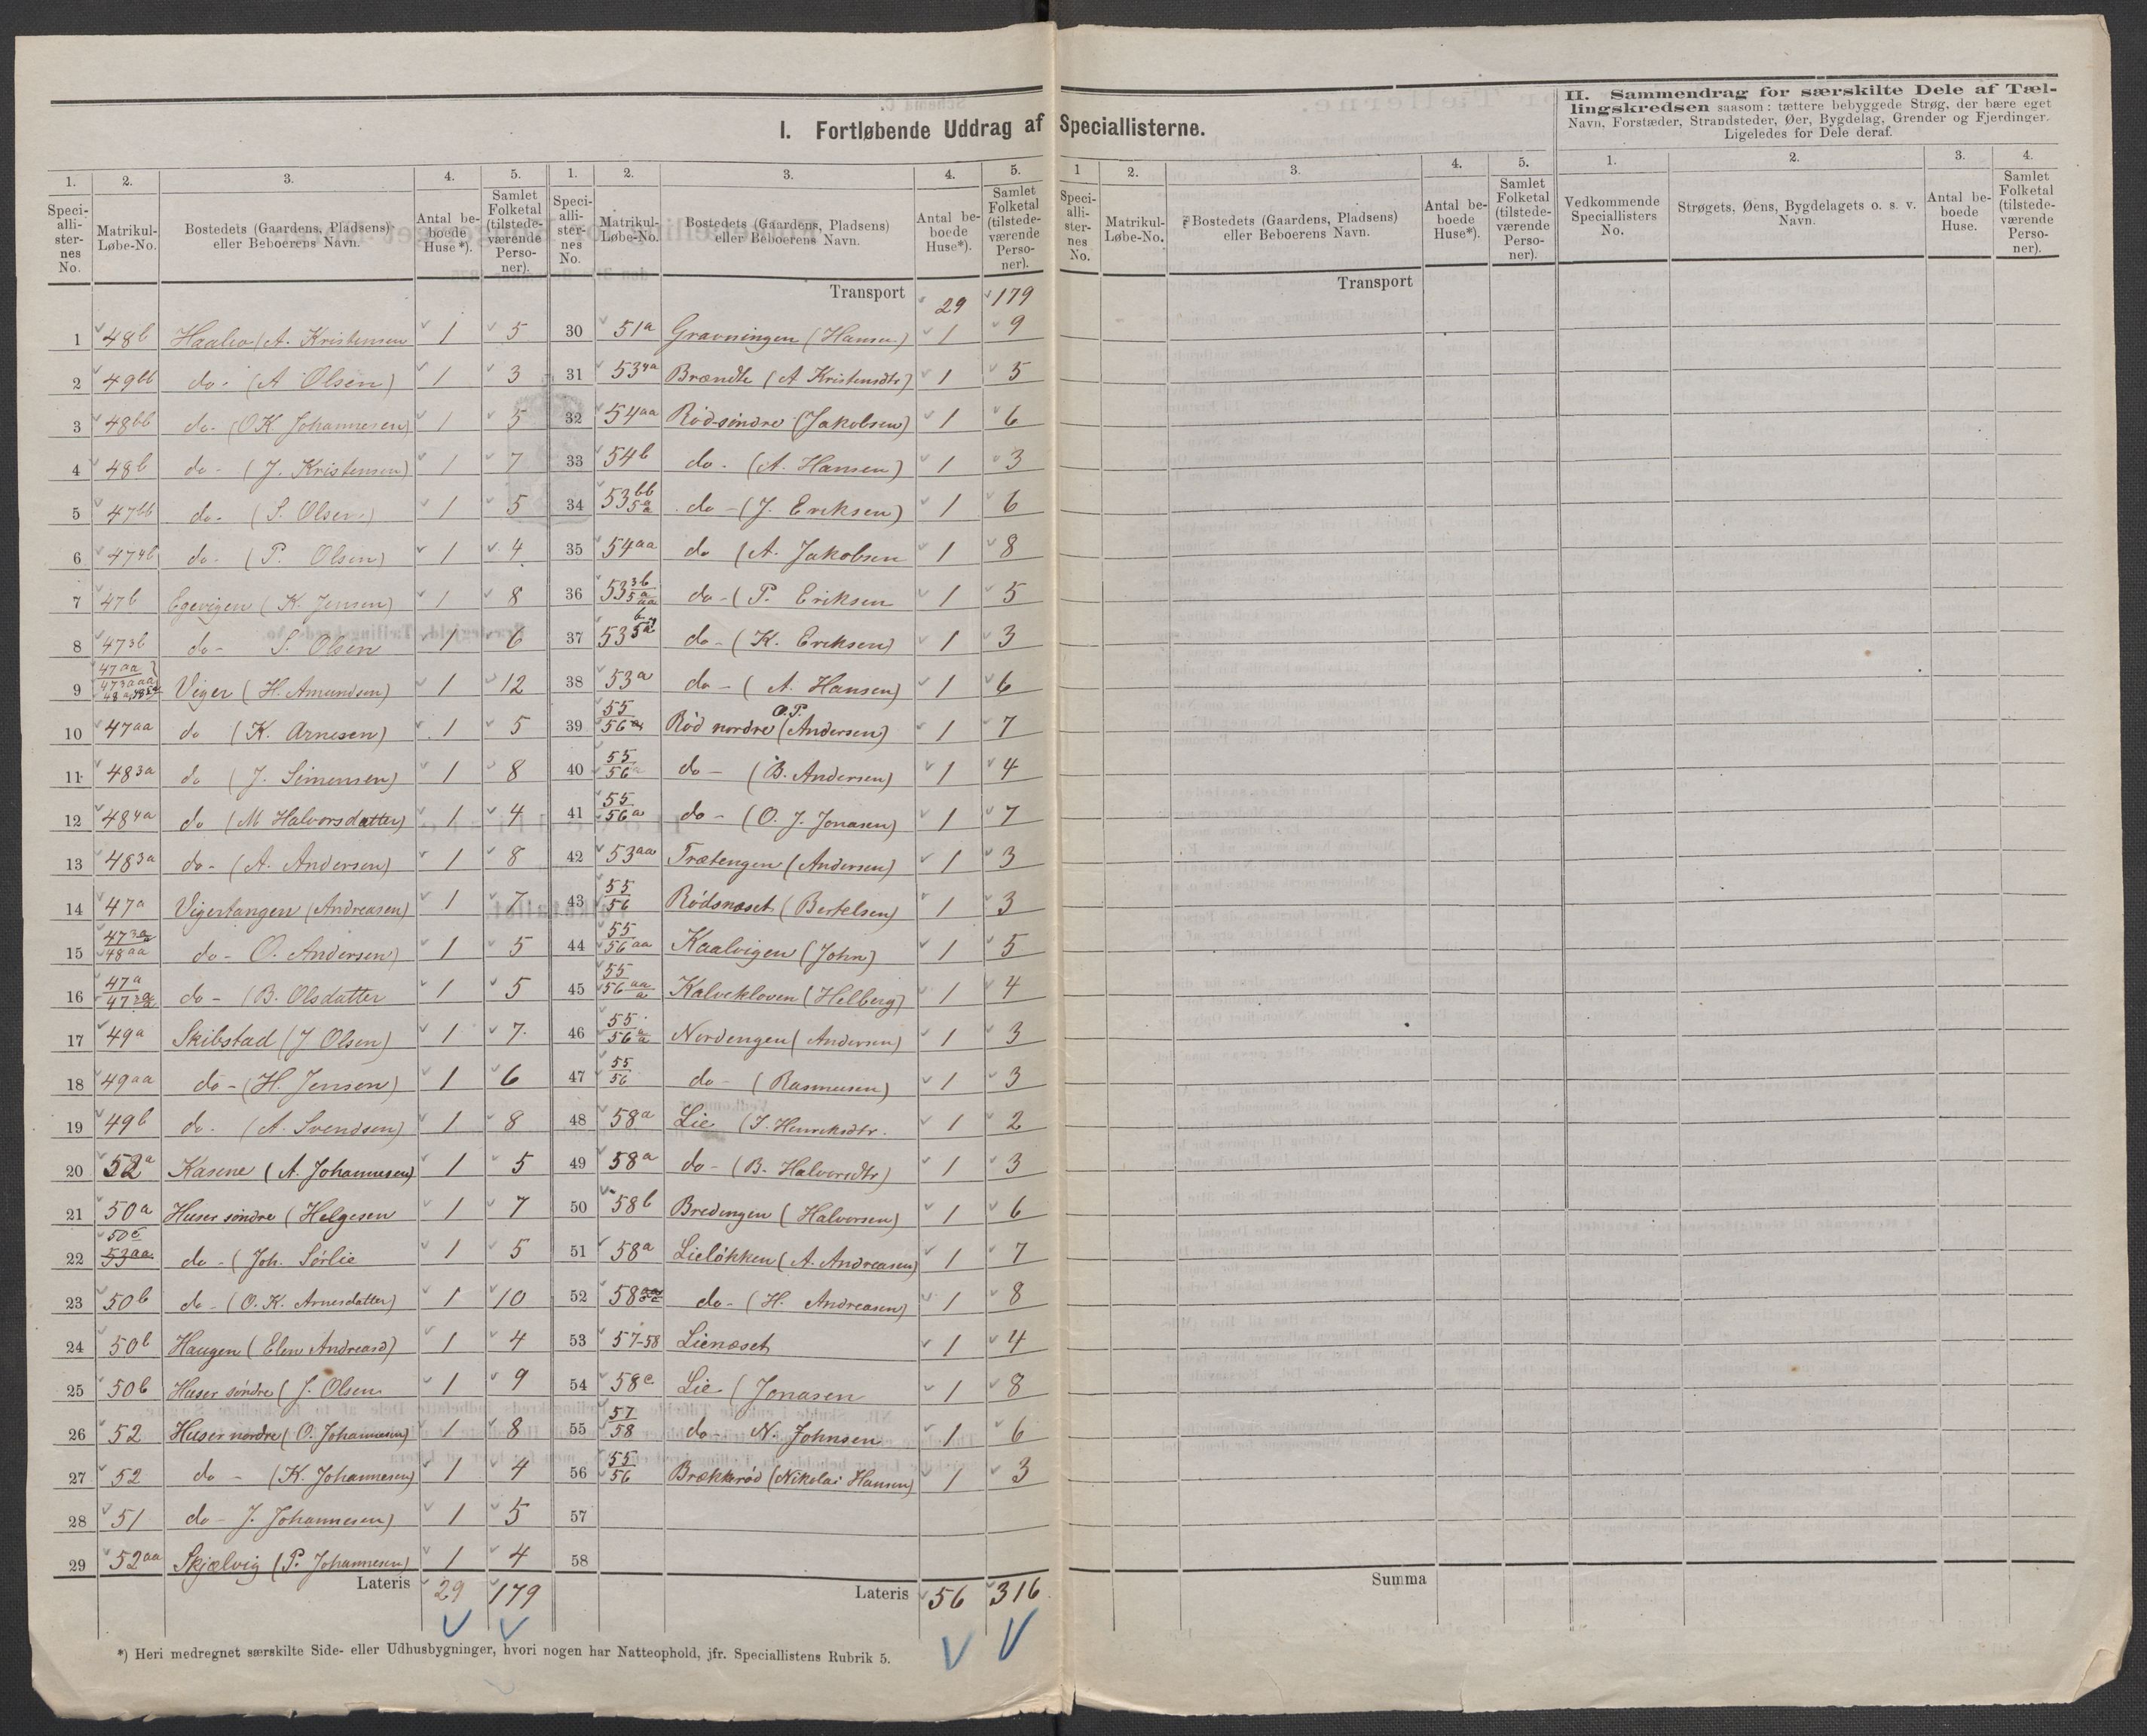 I. Fortløbende Uddrag af Speciallisterne.
1. Speciallisternes No. | 2. Matrikul-Løbe-No. | 3. Bostedets (Gaardens, Pladsens) eller Beboerens Navn. | 4. Antal beboede Huse*). | 5. Samlet Folketal (tilstedeværende Personer).
1 | 48b | Haaleo (A. Kristensen | 1 | 5
2 | 49bb | do. (A Olsen) | 1 | 3
3 | 48bb | do. (O K Johannesen) | 1 | 5
4 | 48b | do - (J. Kristensen) | 1 | 7
5 | 47bb | do. (S. Olsen) | 1 | 5
6 | 474b | do. (P. Olsen) | 1 | 4
7 | 47b | Egevigen (K. Jensen) | 1 | 8
8 | 473b | do - S. Olsen | 1 | 6
9 | 47aa | Viger (H. Amundsen) | 1 | 12
10 | 47aa | do (K. Arnesen) | 1 | 5
11 | 483a | do (J. Simensen) | 1 | 8
12 | 484a | do (M Halvorsdatter) | 1 | 4
13 | 483a | do - (A. Andersen) | 1 | 8
14 | 47a | Vigertangen (Andreasen) | 1 | 7
15 | 473a 48aa | do - O. Andersen) | 1 | 5
16 | 47a 473a | do - (B. Olsdatter | 1 | 5
17 | 49a | Skibstad (J Olsen) | 1 | 7
18 | 49aa | do - (H. Jensen) | 1 | 6
19 | 49b | do. (A. Svendsen) | 1 | 8
20 | 52a | Kasene (A. Johannesen) | 1 | 5
21 | 50a | Huser søndre (Helgesen | 1 | 7
22 | 50c 53aa | do - (Joh. Sørlie | 1 | 5
23 | 50b | do - (O. K. Arnesdatter) | 1 | 10
24 | 50b | Haugen (Elen Andreasd) | 1 | 4
25 | 50b | Huser søndre (J. Olsen | 1 | 9
26 | 52 | Huser nordre (O. Johannesen) | 1 | 8
27 | 52 | do - (K. Johannesen) | 1 | 4
28 | 51 | do - J. Johannesen) | 1 | 5
29 | 52aa | Skjælvig (P. Johannesen) | 1 | 4
Lateris | 29 | 179
1. Speciallisternes No. | 2. Matrikul-Løbe-No. | 3. Bostedets (Gaardens, Pladsens) eller Beboerens Navn. | 4. Antal beboede Huse*). | 5. Samlet Folketal (tilstedeværende Personer).
Transport | 29 | 179
30 | 51a | Gravningen (Hansen) | 1 | 9
31 | 534a | Brændte (A Kristensdtr) | 1 | 5
32 | 54aa | Rød søndre (Jakobsen) | 1 | 6
33 | 54b | do. (A. Hansen) | 1 | 3
34 | 53bb 5a | do - (J. Eriksen) | 1 | 6
35 | 54aa | do (A. Jakobsen | 1 | 8
36 | 533b 5a aa | do - (P. Eriksen | 1 | 5
37 | 53b 5a | do - (K. Eriksen) | 1 | 3
38 | 53a | do - (A. Hansen) | 1 | 6
39 | 55 56a | Rød nordre (O. P. Andersen) | 1 | 7
40 | 55 56a | do - (B. Andersen) | 1 | 4
41 | 55 56a | do - (O. J. Jonasen) | 1 | 7
42 | 53aa | Trætengen (Andersen) | 1 | 3
43 | 55 56 | Rødsnæset (Bertelsen) | 1 | 3
44 | 55 56aa | Kaalvigen (John) | 1 | 5
45 | 55 56aa a | Kalvekloven (Helberg) | 1 | 4
46 | 55 56a a | Nordengen (Andersen) | 1 | 3
47 | 55 56 | do - (Rasmusen) | 1 | 3
48 | 58a | Lie (I. Henriksdtr. | 1 | 2
49 | 58a | do - (B. Halvorsdtr) | 1 | 3
50 | 58b | Bredengen (Halvorsen) | 1 | 6
51 | 58a | Lieløkken (A. Andreasen) | 1 | 7
52 | 58 | do - (H. Andreasen) | 1 | 8
53 | 57-58 | Lienæset | 1 | 4
54 | 58c | Lie (Jonasen | 1 | 8
55 | 57 58 | do - N. Johnsen | 1 | 6
56 | 55 56 | Brækkerød (Nikolai Hansen) | 1 | 3
57
58
Lateris | 56 | 316
*) Heri medregnet særskilte Side- eller Udhusbygninger, hvori nogen har Natteophold, jfr. Speciallistens Rubrik 5.
1 Speciallisternes No. | 2. Matrikul-Løbe-No. | 3. Bostedets (Gaardens, Pladsens) eller Beboerens Navn. | 4. Antal beboede Huse*). | 5. Samlet Folketal (tilstedeværende Personer).
Transport
Summa
II. Sammendrag for særskilte Dele af Tællingskredsen saasom: tættere bebyggede Strøg, der bære eget
Navn, Forstæder, Strandsteder, Øer, Bygdelag, Grender og Fjerdinger.
Ligeledes for Dele deraf.
1. Vedkommende Speciallisters No. | 2. Strøgets, Øens, Bygdelagets o. s. v. Navn. | 3. Antal beboede Huse. | 4. Samlet Folketal (tilstedeværende Personer).